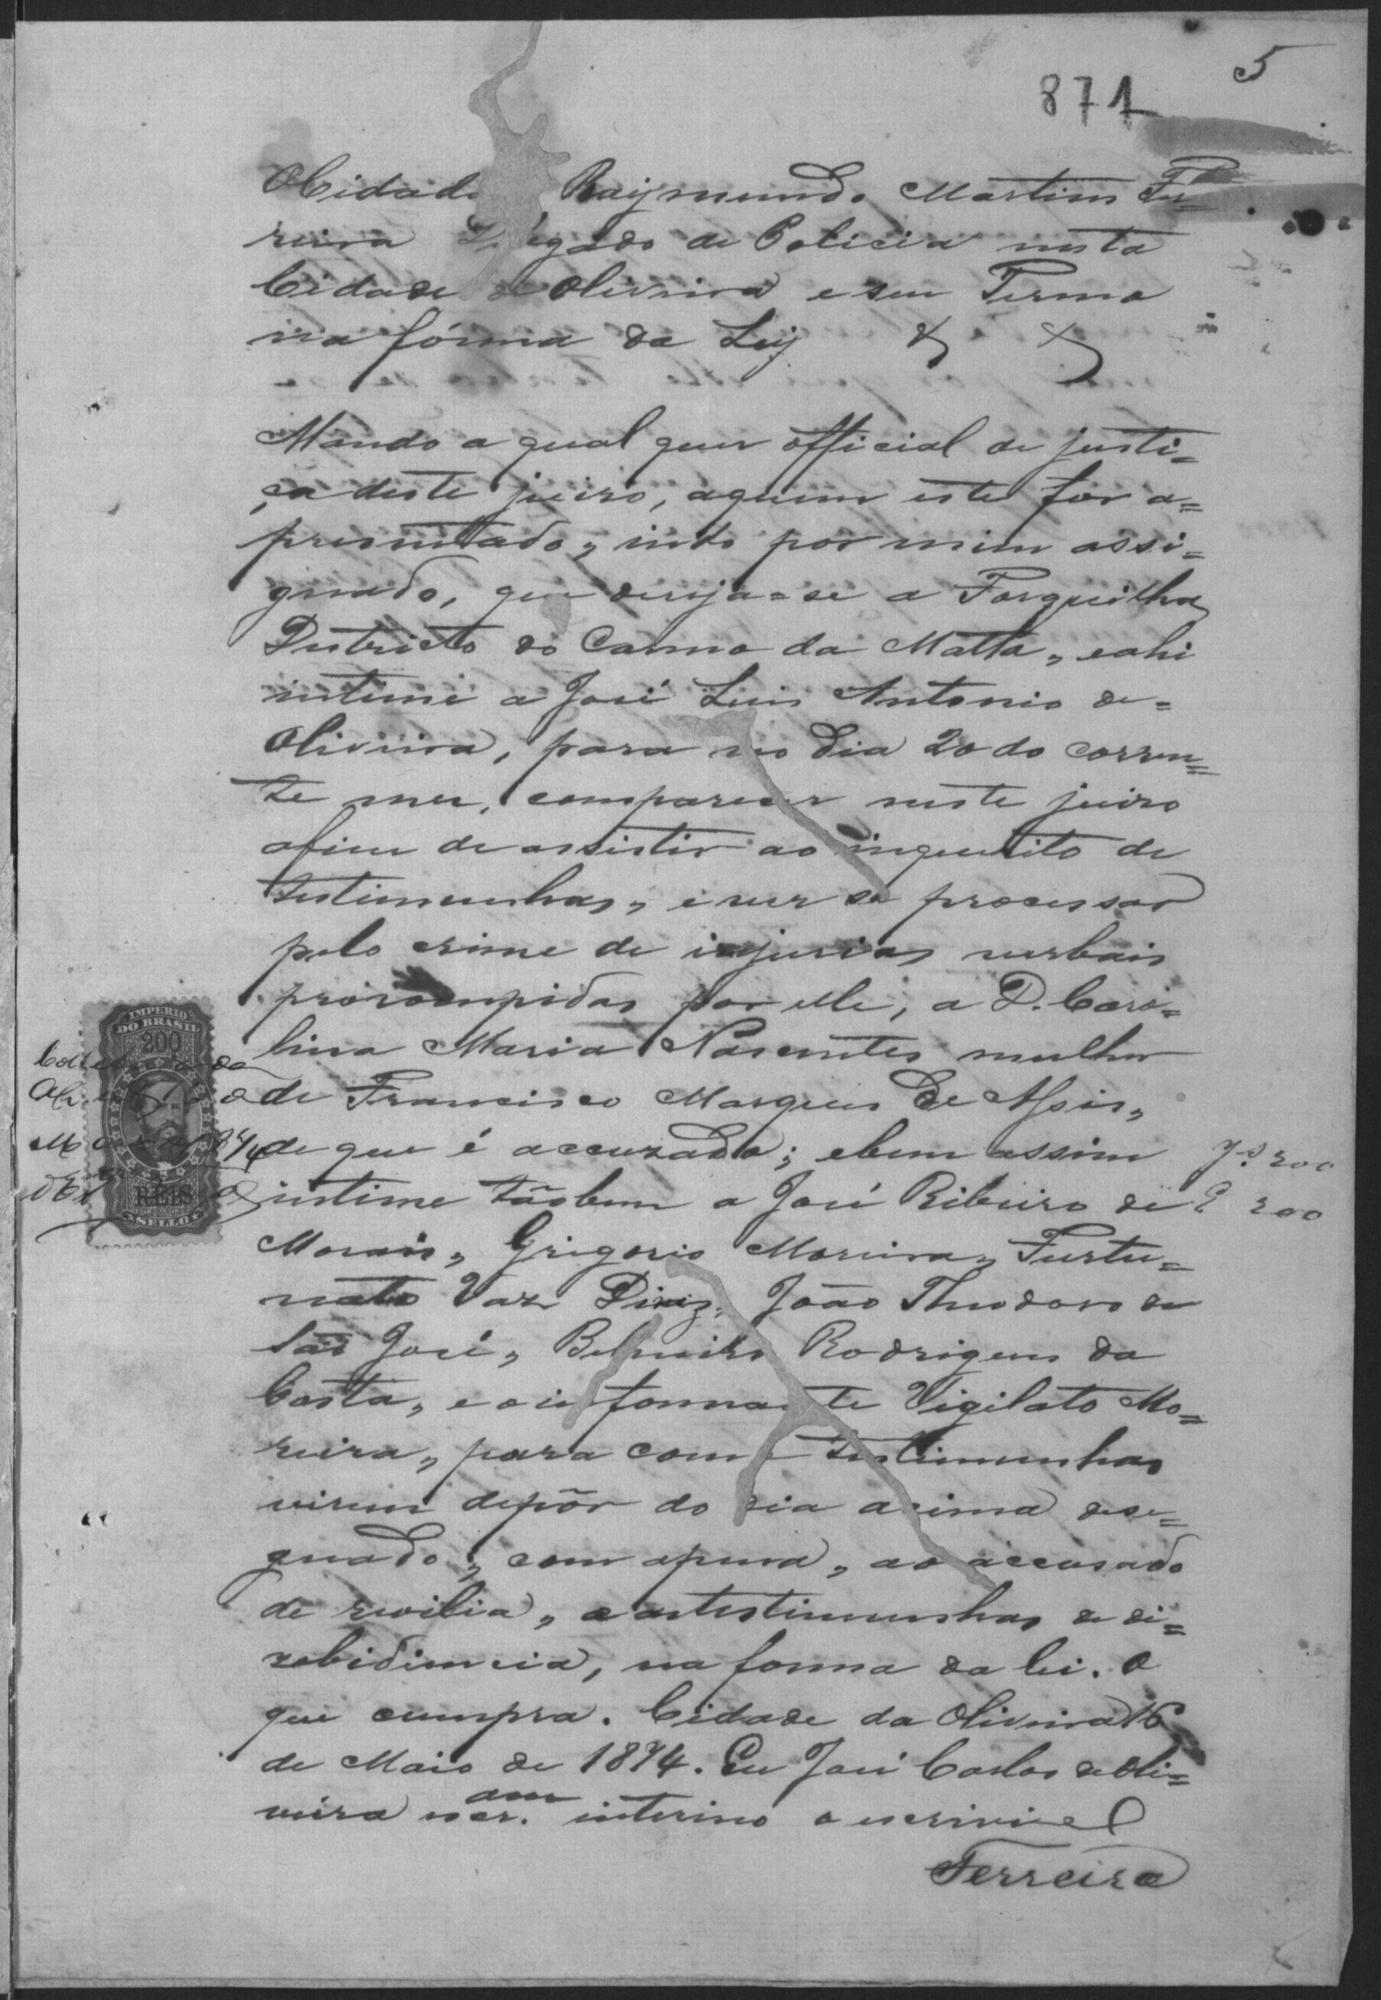 5
871
O Cidadão Raymundo Martins Fer-
reira Delegado de Policia nesta
Cidade de Oliveira e seu Termo
na fórma da Ley & &
Mando a qual quer official de justi=
ça deste juizo, aquem este for a=
presentado, indo por mim assi=
gnado, que dirija=se a Forquilha
Districto do Carmo da Matta, eahi
intime a José Luis Antonio de=
Oliveira, para no dia 20 do corren=
te mez, comparecer neste juizo
afim de assistir ao inquerito de
testimunhas, e ver se processar
pelo crime de injurias verbais
prorompidas por elle, a D. Caro=
lina Maria Nascentes mulher
de Francisco Marques de Assis,
de que é accuzado; ebem assim
intime tãobem a José Ribeiro de
Morais, Grigorio Moreira, Furtu=
nato Vaz Diniz, João Theodoro de
São José, Belmiro Rodrigues da
Costa, e o informante Vigilato Mo=
reira, para como testimunhas
virem depôr do dia acima desi=
gnado, com apena, ao accusado
de revilia, e astestimunhas de di=
zobidiencia, na forma da lei. O
que cumpra. Cidade da Oliveira 16
de Maio de 1874. Eu José Carlos de Oli=
veira escr.am interino o escrivi
Ferreira
IMPERIO
DO BRASIL
200
REIS
SELLO
200
200